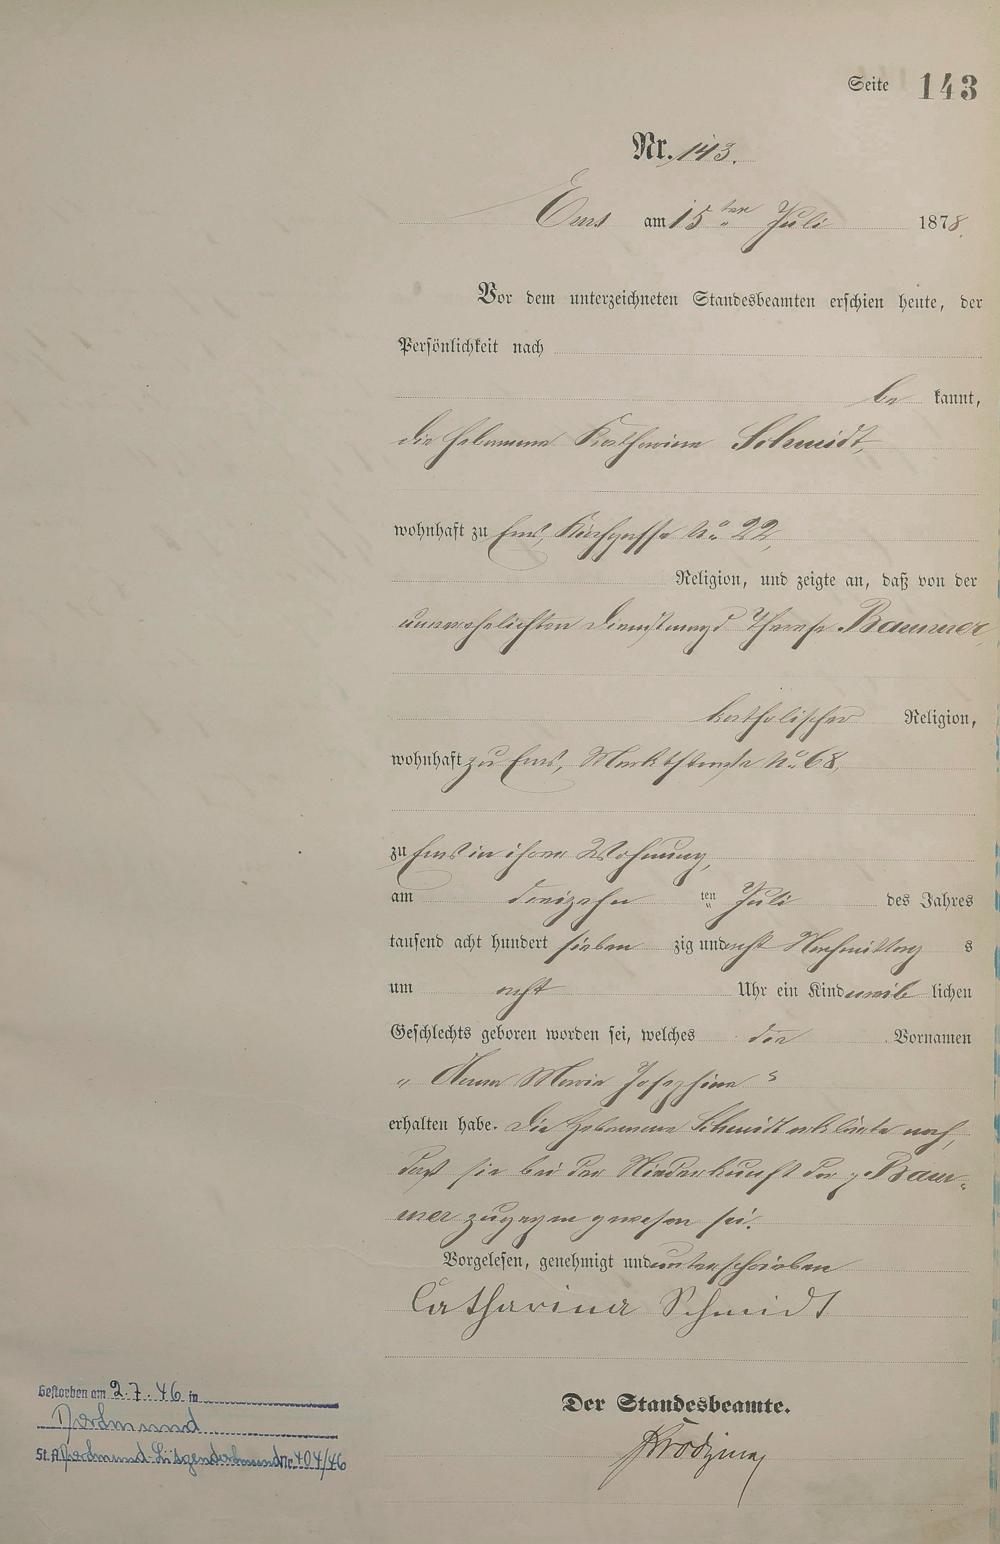 Seite 143
Nr. 143.
Ems am 15ten Juli 1878.
Vor dem unterzeichneten Standesbeamten erschien heute, der
Persönlichkeit nach
be kannt,
die Hebamme Katharina Schmidt,
wohnhaft zu Ems, Kirchgasse No 22,
Religion, und zeigte an, daß von der
unverehelichten Dienstmagd Therese Baumer,
katholischer Religion,
wohnhaft zu Ems, Marktstraße No 68,
zu Ems in ihrer Wohnung,
am dreizehn ten Juli des Jahres
tausend acht hundert sieben zig und acht Nachmittag s
um acht Uhr ein Kind weib lichen
Geschlechts geboren worden sei, welches die Vornamen
„Anna Maria Josephine“
erhalten habe. Die Hebamme Schmidt erklärte noch,
daß sie bei der Niederkunft der p Bau-
mer zugegen gewesen sei.
Vorgelesen, genehmigt und unterschrieben
Catharina Schmidt
Der Standesbeamte.
Gestorben am 2.7.46 in
Dortmund
St.A. Dortmund-Lütgendortmund Nr. 404/46